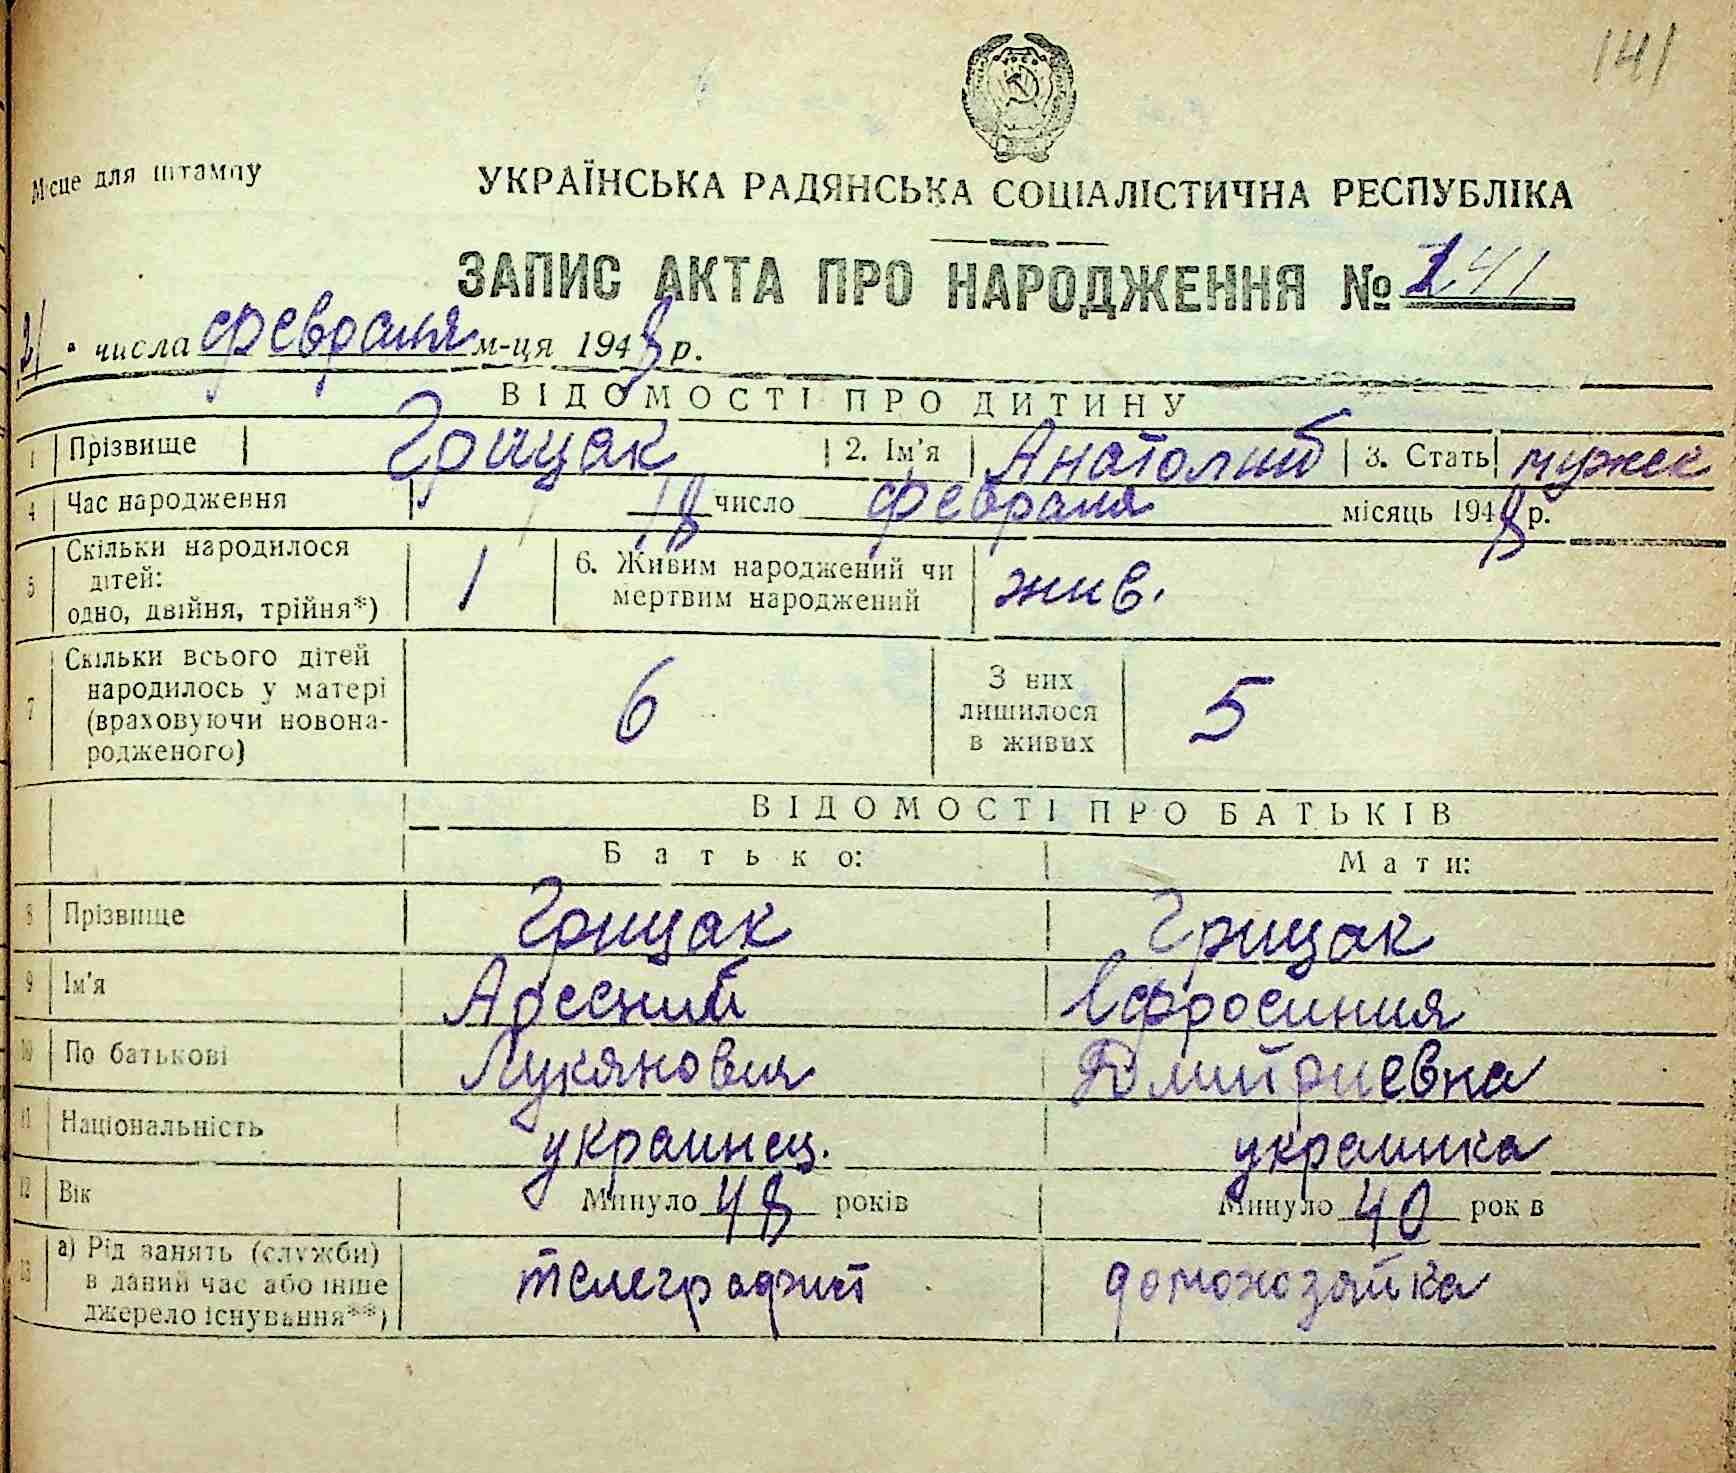 141
Місце для штампу
УКРАЇНСЬКА РАДЯНСЬКА СОЦІАЛІСТИЧНА РЕСПУБЛІКА
ЗАПИС АКТА ПРО НАРОДЖЕННЯ № 141
21 " числа февраля м-ця 1948 р.
ВІДОМОСТІ ПРО ДИТИНУ
1 Прізвище Грицак 2. Ім'я Анатолий 3. Стать мужск
4 Час народження 18 число февраля місяць 1948 р.
5 Скільки народилося дітей: одно, двійня, трійня*) 1 6. Живим народжений чи мертвим народжений жив.
7 Скільки всього дітей народилось у матері (враховуючи новонародженого) 6 З них лишилося в живих 5
ВІДОМОСТІ ПРО БАТЬКІВ
Батько: Мати:
8 Прізвище Грицак Грицак
9 Ім'я Арсений Ефросиния
10 По батькові Лукянович Дмитриевна
11 Національність украинец. украинка
12 Вік Минуло 48 років Минуло 40 рок в
13 а) Рід занять (служби) в даний час або інше джерело існування**) телеграфист домохозяйка